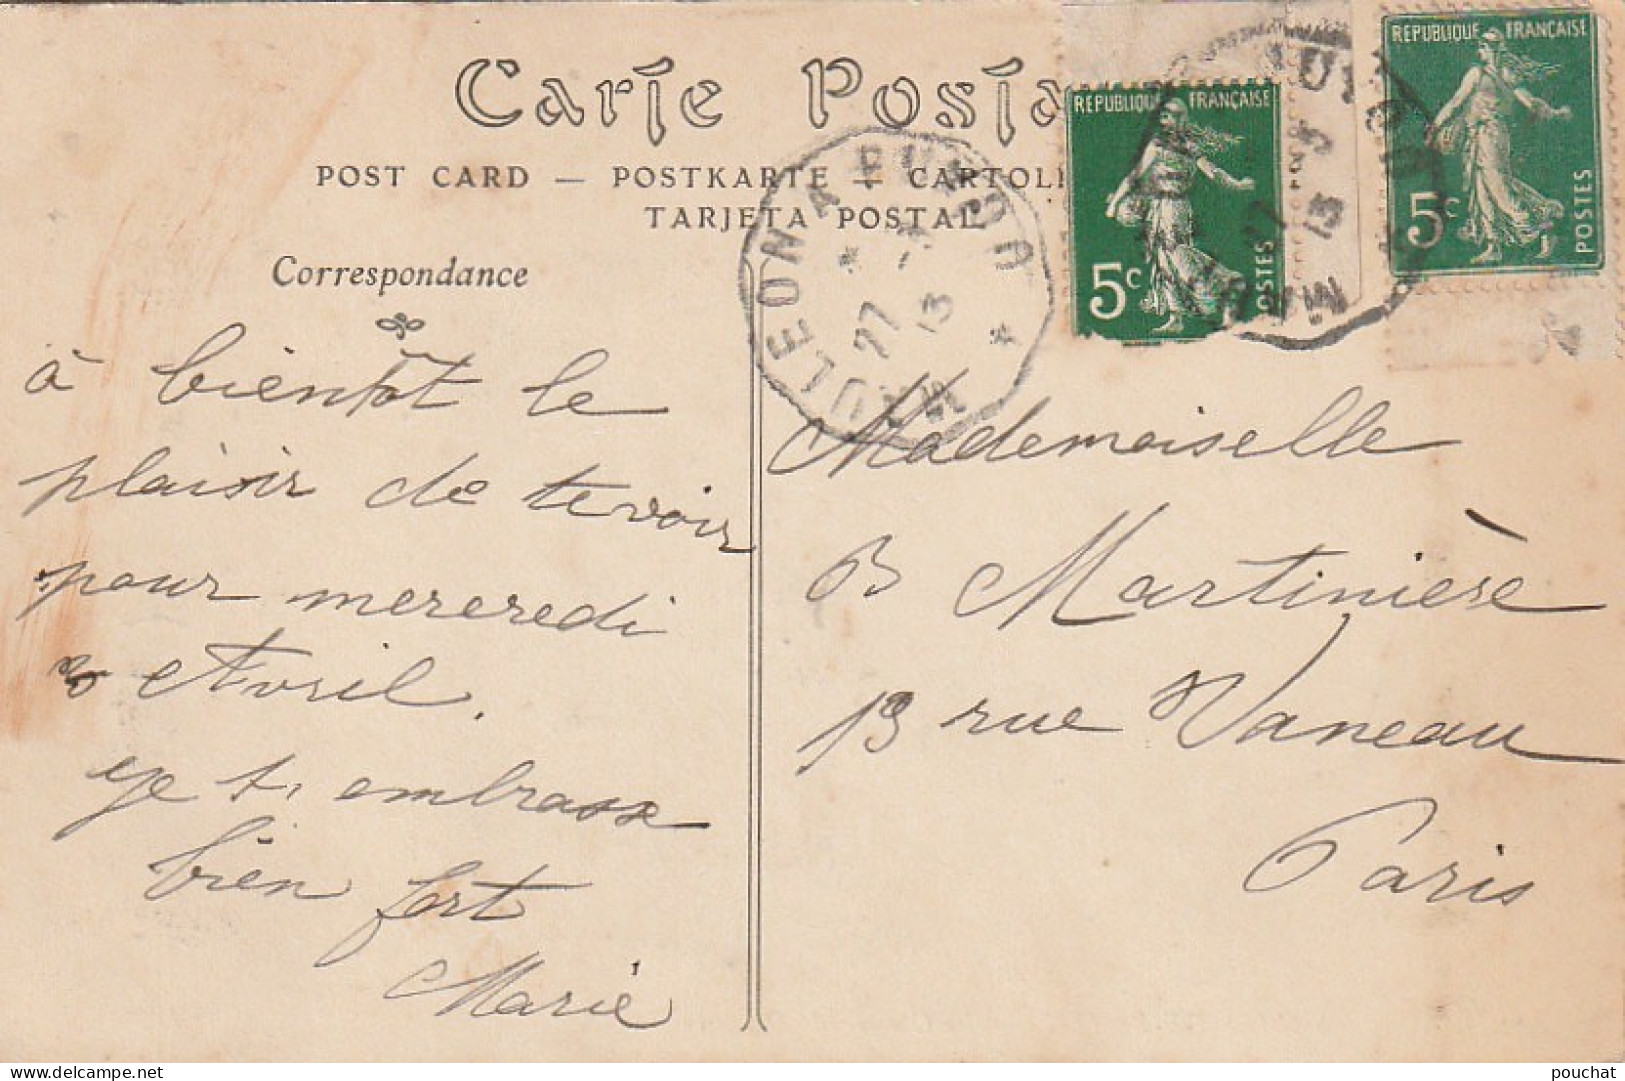 Carte Posta
POST CARD — POSTKARTE — CARTOLI
TARJETA POSTAL
Correspondance
REPUBLIQUE FRANÇAISE
5c
POSTES
REPUBLIQUE FRANÇAISE
5c
POSTES
MAULEON A PUYOO
27 - 3
13
à bientôt le
plaisir de te voir
pour mercredi
Avril.
je t'embrasse
bien fort
Marie
Mademoiselle
B Martinière
13 rue Vaneau
Paris
delcampe.net
pouchat